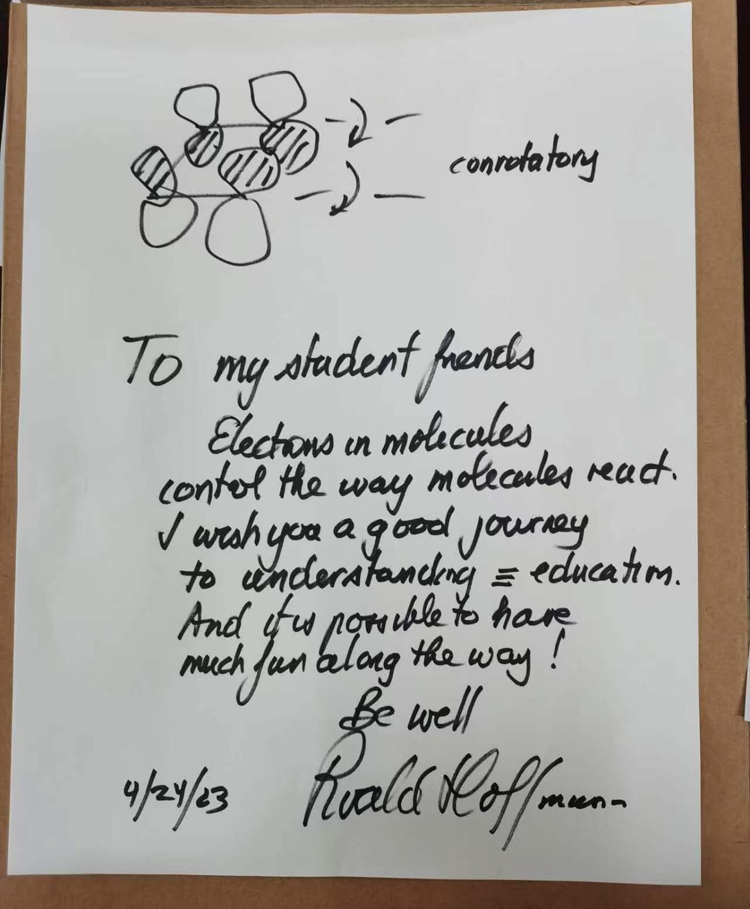 conrotatory
To my student friends
Electrons in molecules
control the way molecules react.
I wish you a good journey
to understanding ≡ education.
And it is possible to have
much fun along the way!
Be well
4/24/23 Roald Hoffmann